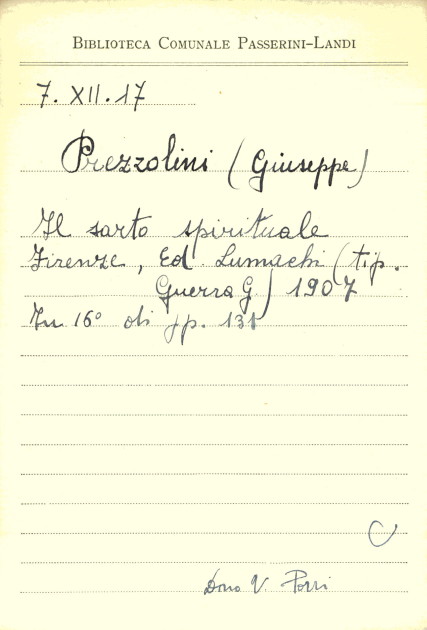 BIBLIOTECA COMUNALE PASSERINI-LANDI
7. XII. 17
Prezzolini (Giuseppe)
Il sarto spirituale
Firenze, Ed. Lumachi (tip.
Guerra G.) 1907
In 16° di pp. 131
C
Dono V. Porri